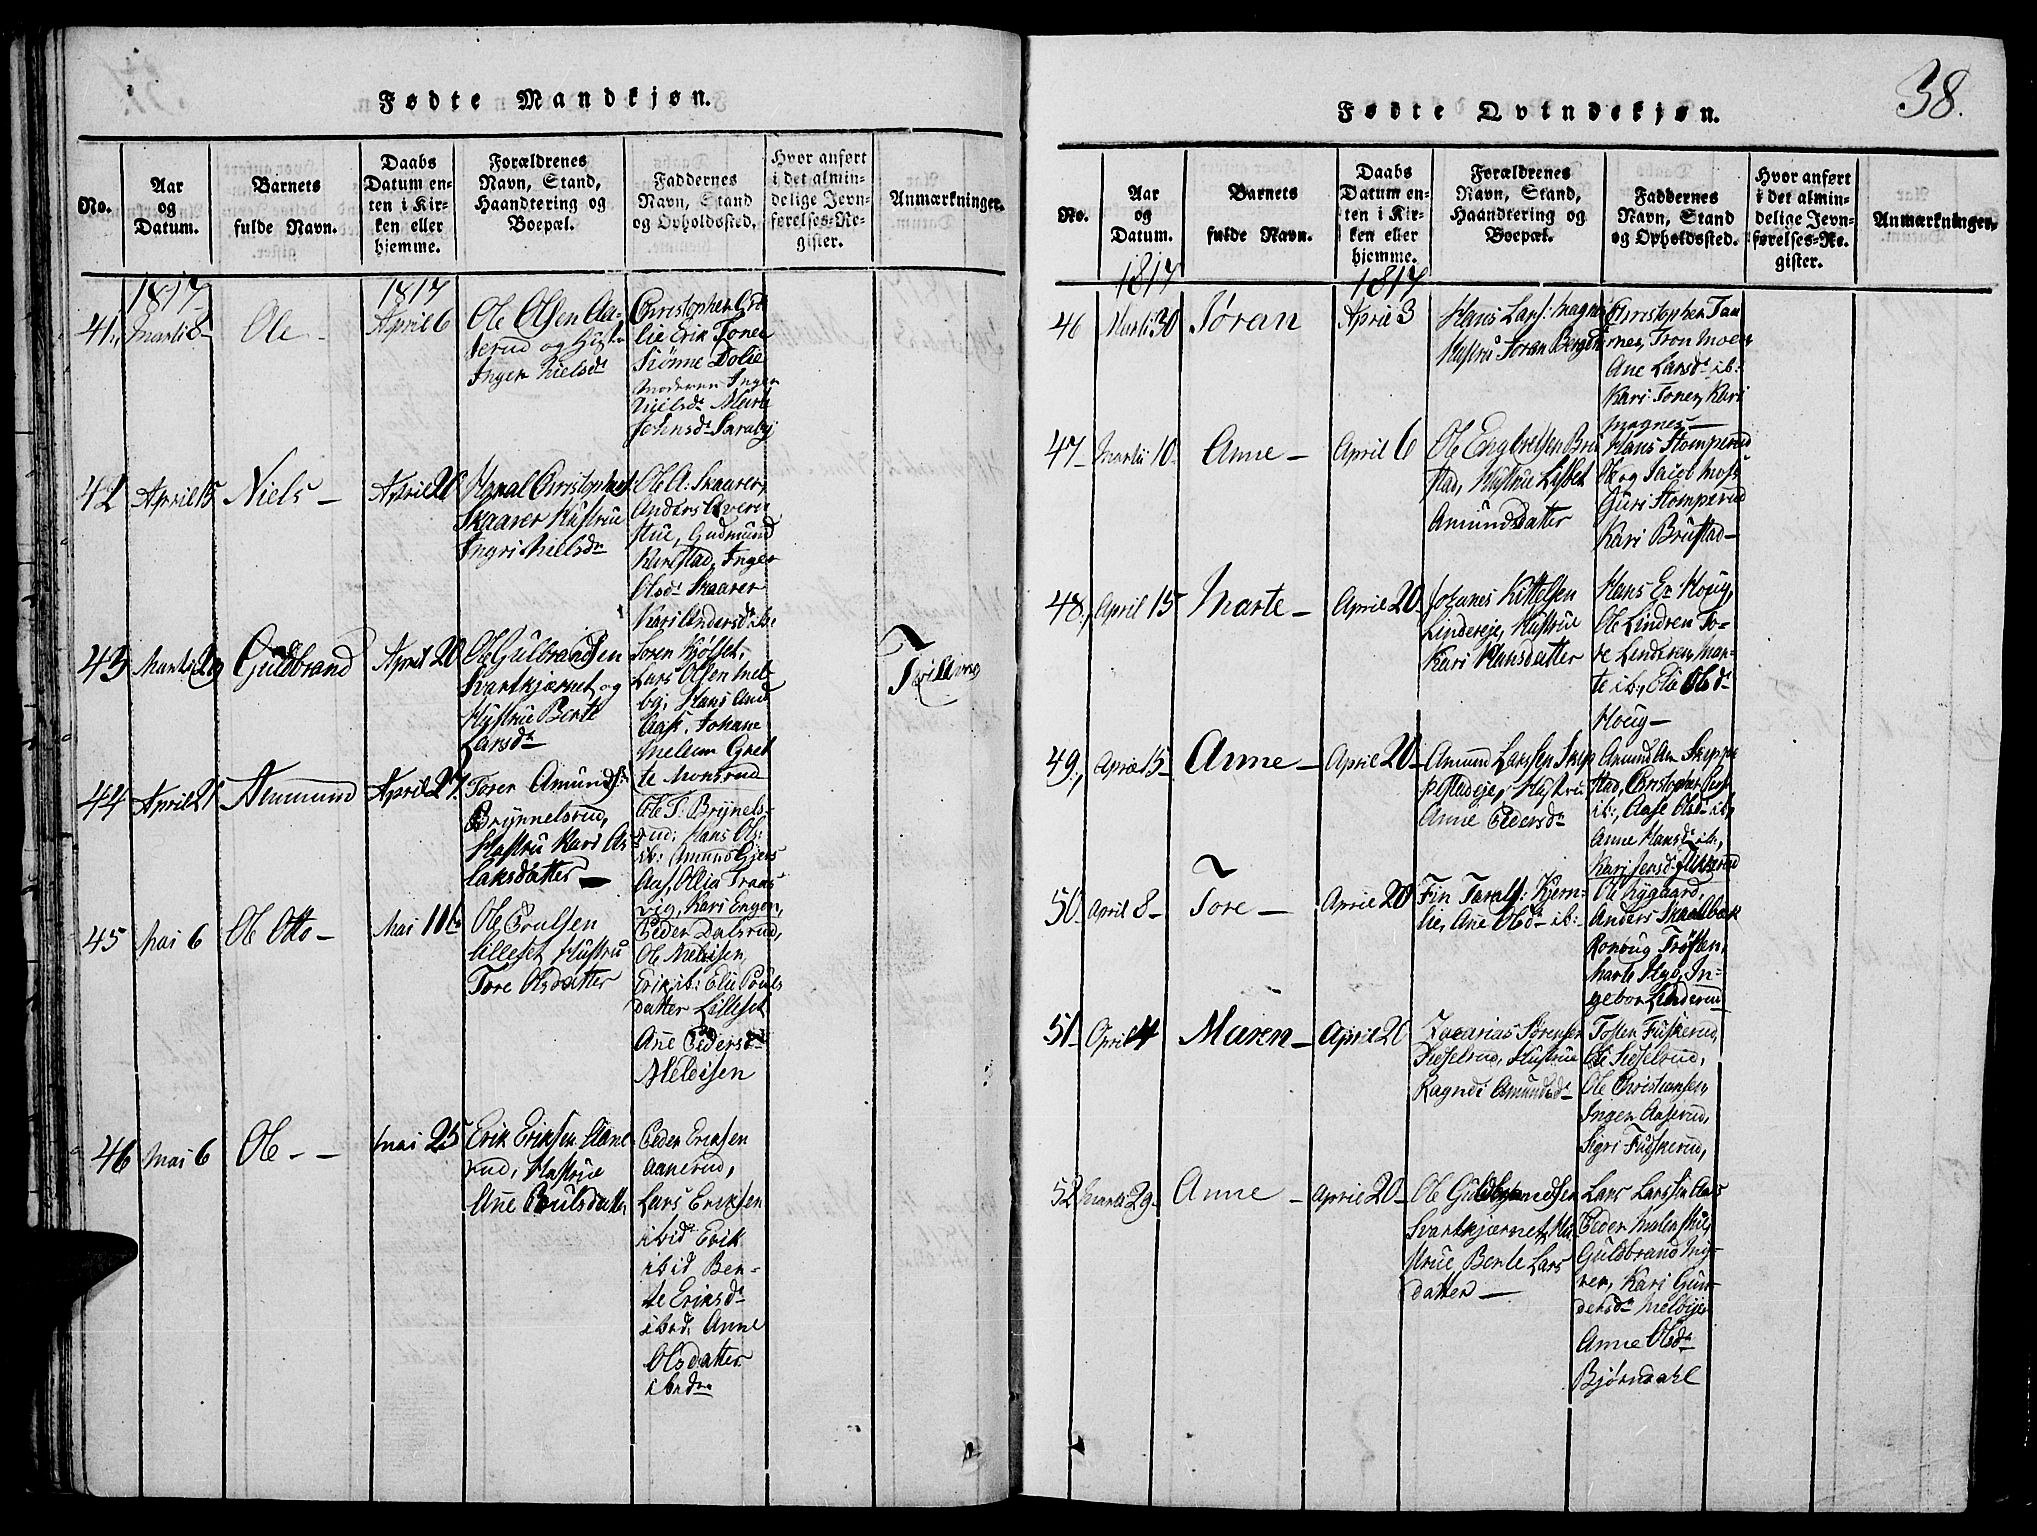 38.
Fødte Mandkjøn.
No.
Aar
og
Datum.
Barnets
fulde Navn.
Daabs
Datum en-
ten i Kir-
ken eller
hjemme.
Forældrenes
Navn, Stand,
Haandtering og
Boepæl.
Faddernes
Navn, Stand
og Opholdssted.
Hvor anført
i det almin-
delige Jevn-
førelses-Re-
gister.
Anmærkninger.
1817
1817
41.
Martii 8
Ole
April 6
Ole Olsen Aa-
serud og Hust
Inger Nielsdr
Christopher
lie Erik Toner
Dolie
moderen Inger
Nielsdr Marte
Johnsdr
42
April 15
Niels
April 20
Christophers
Skaarer Hustrue
Ingri Nielsdr
Ole A: Skaarer,
Anders
Stue, Gudmund
Karlstad, Inger
Olsdr Skaarer
Kari Andersdr ib.
43
Martii 29
Guldbrand
April 20
Ole Gulbrandsen
Svartkjærnet og
Hustrue Berte
Larsdr
Soren Kjølset,
Lars Olsen Mel-
by, Hans
Aas, Johane
Melum Gret
te Monsrud
Tvilling
44
April 21
Ammund
April 27.
Toren Amunds:
Brynnelsrud,
Hustru Kari As-
laksdatter
Ole T: Brynels-
rud, Hans Ols:
ib: Amund
Aas, Olia Trans-
vig, Kari Engen,
45
Mai 6
Ole Otto
Mai 11te
Ole Poulsen
Lilleset Hustru
Tore Olsdatter
Peder Dalsrud,
Ole Melbisen,
Erik ib: Elie Pouls
datter Lilleset
Ane Pedersdr
Melbisen
46
Mai 6
Ole
Mai 25
Erik Eriksen Aane
rud, Hustrue
Ane Poulsdatter
Peder Eriksen
Aanerud,
Lars Eriksen
ibid Erik
ibid Ber-
te Eriksdr
ibid. Anne
Olsdatter
ibidm
Fødte Qvindekjøn.
No.
Aar
og
Datum.
Barnets
fulde Navn.
Daabs
Datum en-
ten i Kir-
ken eller
hjemme.
Forældrenes
Navn, Stand,
Haandtering og
Boepæl.
Faddernes
Navn, Stand
og Opholdssted.
Hvor anført
i det almin-
delige Jevn-
førelses-Re.
gister.
Anmærkninger.
1817
1817
46
Martii 30
Jøran
April 3
Hans Lars: Magnes
Hustru Joran
Christopher
Tron Moen
Ane Larsdr ib:
Kari Toner, Kari
Magnes
47
Martii 10
Anne
April 6
Ole Engbretsen Bru
stad, Hustrue Lisbet
Amundsdatter
Hans Stomperud
Ole og Jacob Moss
Guri Stomperud
Kari Brustad
48.
April 15
Marte
April 20
Johanes Kittelsen
Lindereje, Hustrue
Kari Hansdatter
Hans Er: Houg,
Ole Lindren To-
re Lindren, Mar-
te ib, Elie Olsdr
Houg
49.
April 15
Anne
April 20
Amund Larssen Skip
pestadeje, Hustru
Anne Pedersdr
Amund Am Skippe
stad, Christopher
ib:, Aase Olsdr ib,
Anne Hansdr ib.,
Kari Jensdr Fløkkerud
50
April 8
Tore
April 20
Fin Taralss: Kjern-
lie, Ane Olsdr ib:
Ole Rygaard,
Anders Skaalbæk
Ronoug Trøsten,
Marte Hyo, In-
gebor Linderen
51
April 4
Maren
April 20
Zacarias Sørensen
Sidselrud, Hustrue
Ragndi Amundsdr
Tosten Fuskerud,
Ole Sidselrud,
Ole Christiansen,
Inger Aaserud,
Sigri Fuskerud,
52
Martii 29
Anne
April 20
Ole Guldbrandsen
Svartkjærnet, Hu-
strue Berte Lars
datter
Lars Larssen Aas
Peder
Guldbrand
Kari Gun-
dersdr Melbye
Anne Olsdr
Bjørndahl